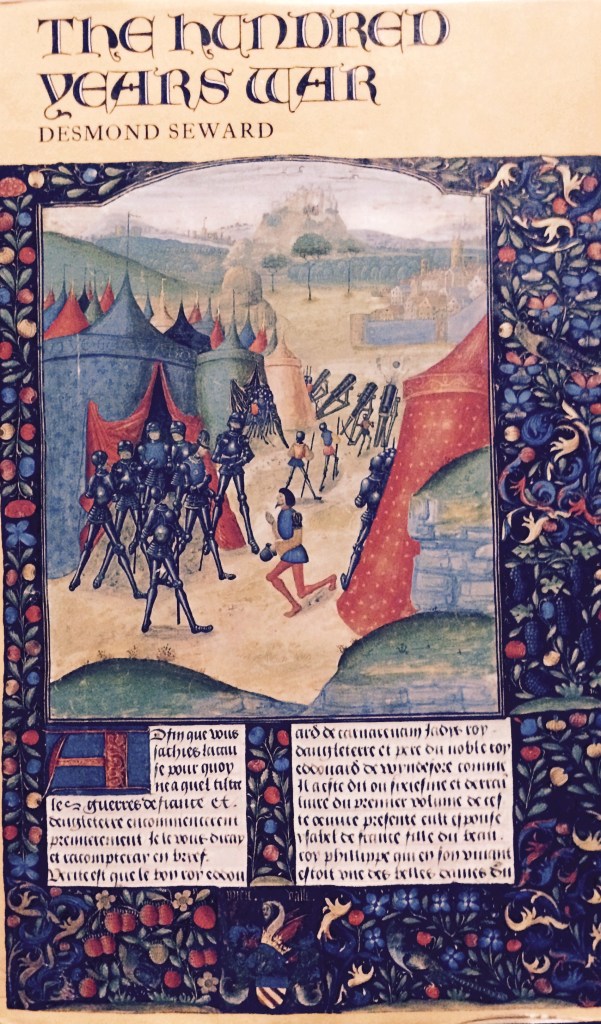 THE HUNDRED
YEARS WAR
DESMOND SEWARD
Affin que vous
sachies la cau
se pour quoy
ne a quel tiltre
les guerres de france et
dengleterre encommencerent
premierement Je le vous diray
et racompteray en brief.
Verite est que le bon roy edou
ard de carnarenam jadis roy
dangleterre et pere du noble roy
edouard de wyndesore comme
Il a este dit ou sixiesme et derrai
livre du premier volume de ces
te oeuvre presente eult espouse
ysabel de france fille du beau
roy philippe qui en son vivant
estoit une des belles dames du